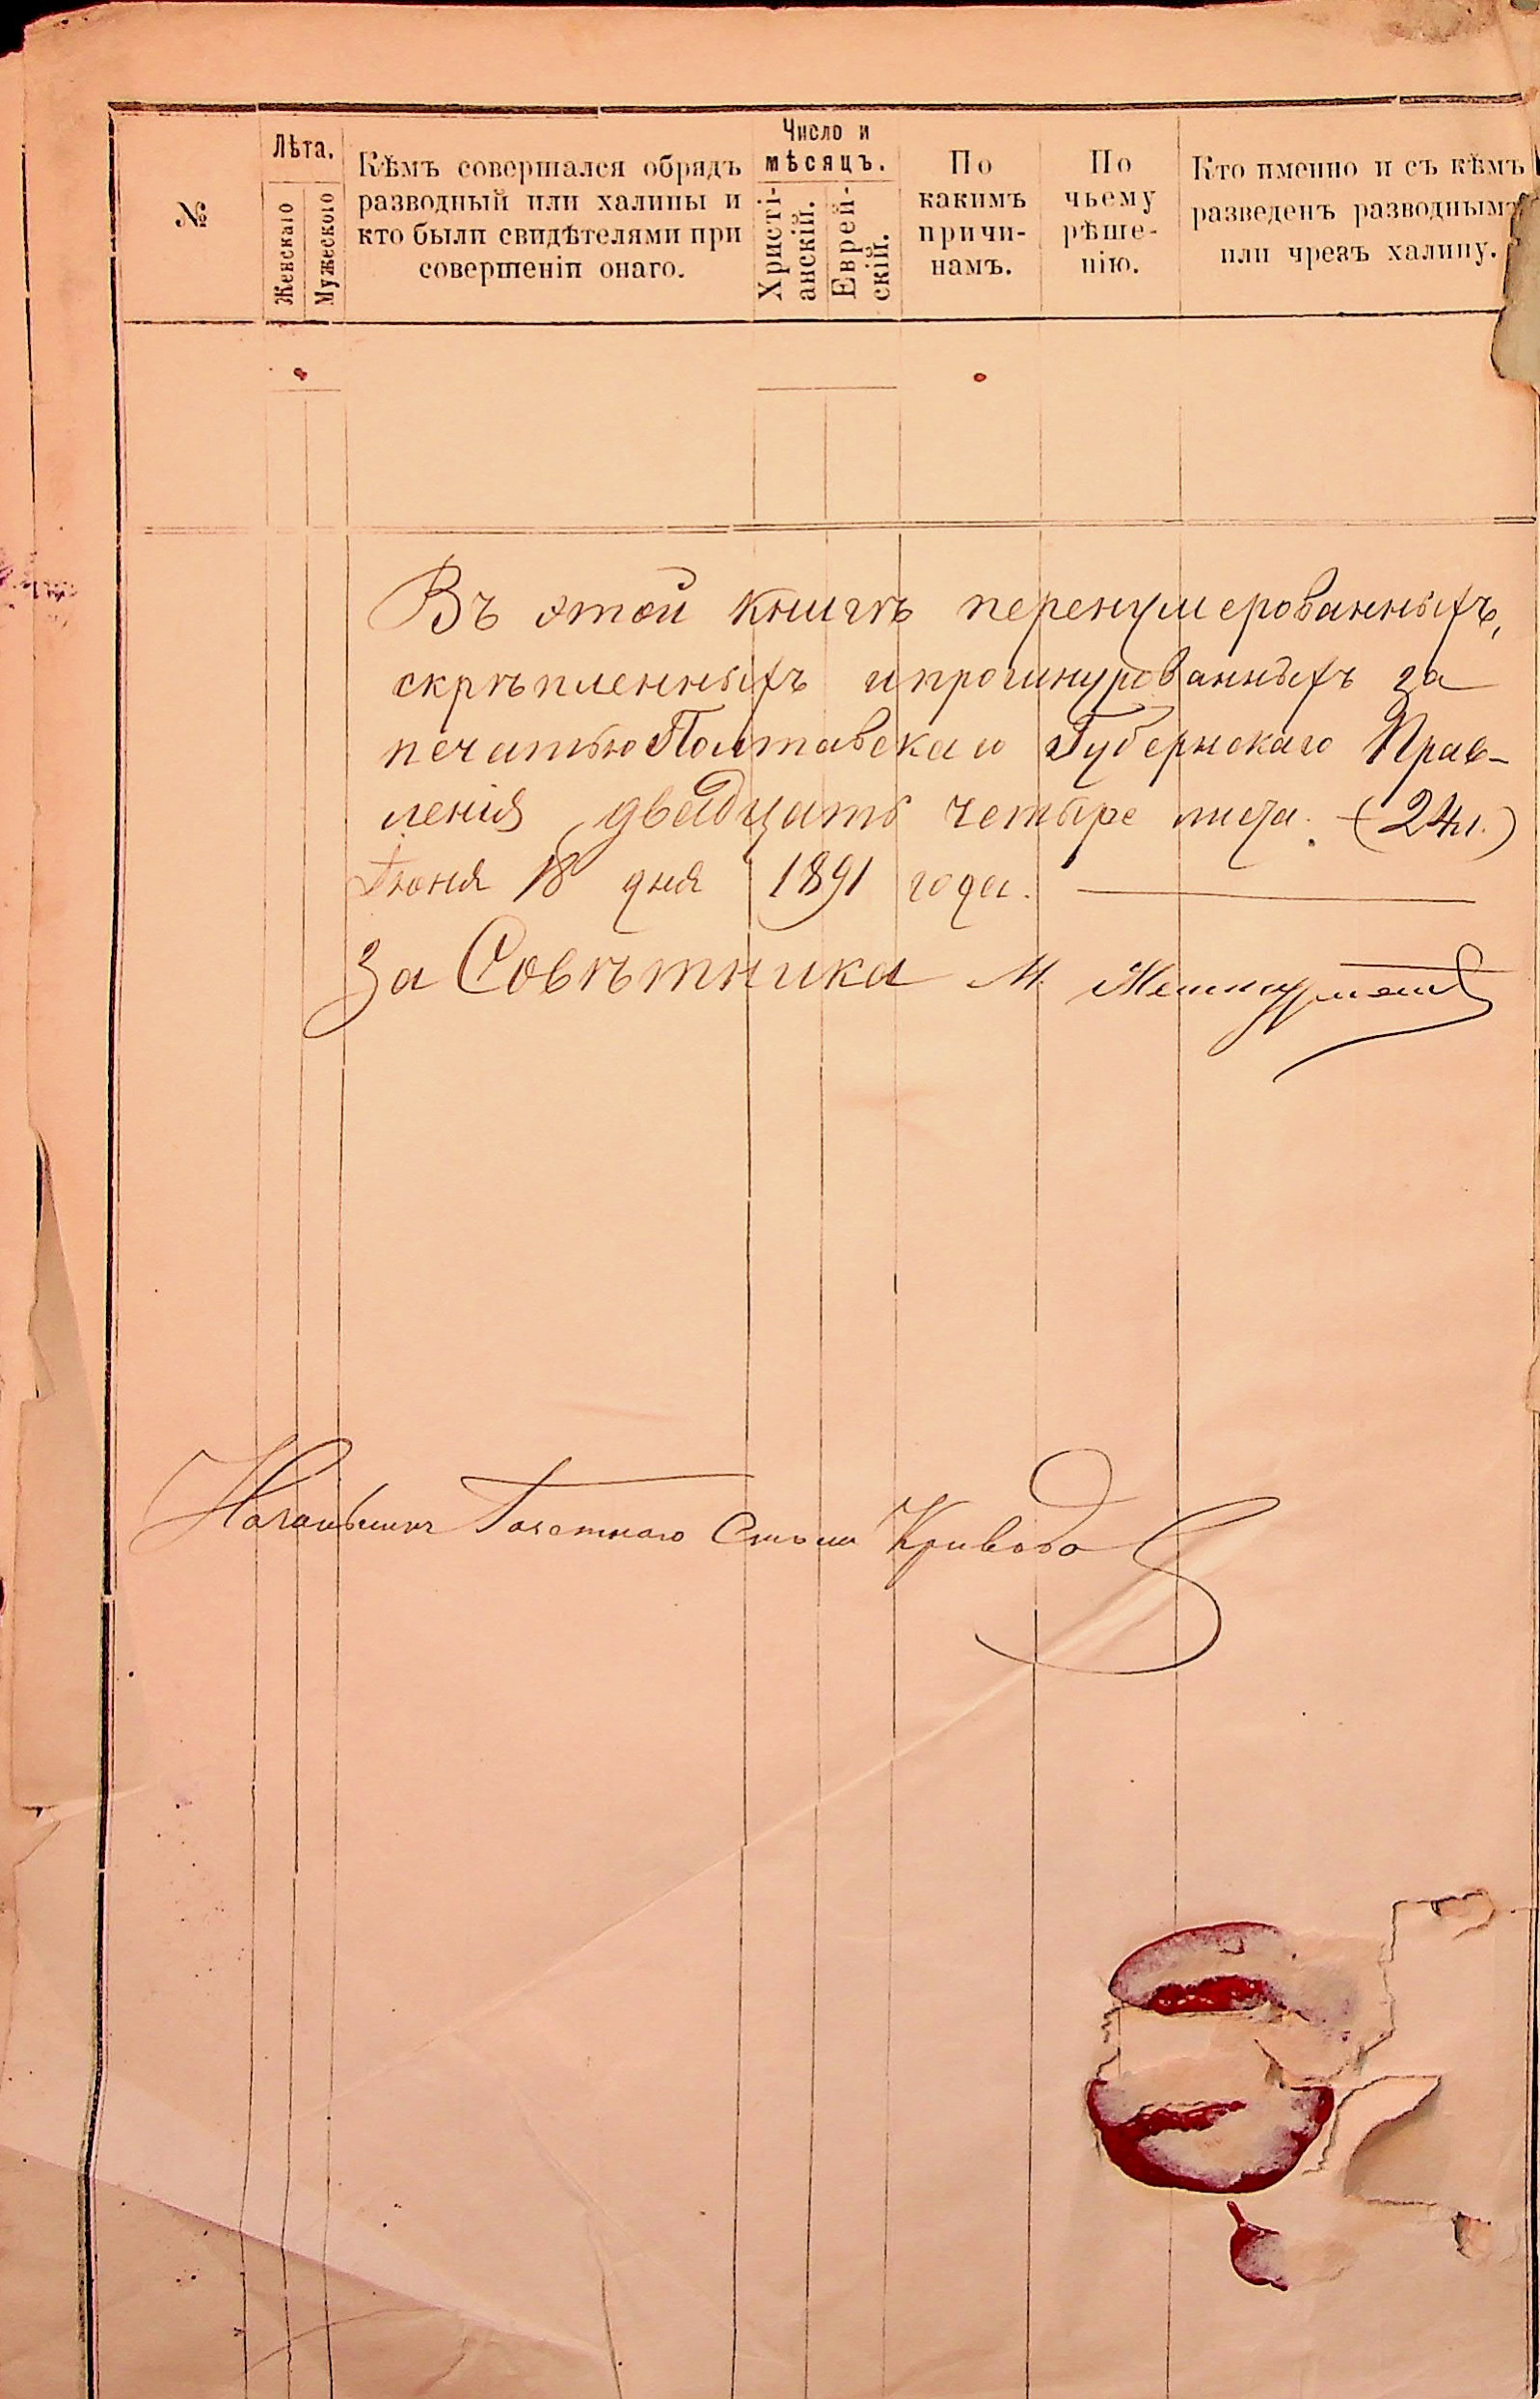 №
Лѣта.
Женскаго
Мужеского
Кѣмъ совершался обрядъ
разводный или халицы и
кто были свидѣтелями при
совершеніи онаго.
Число и
мѣсяцъ.
Христі-
анскій.
Еврей-
скій.
По
какимъ
причи-
намъ.
По
чьему
рѣше-
нію.
Кто именно и съ кѣмъ
разведенъ разводнымъ
или чрезъ халицу.
Въ этой книгѣ перенумерованныхъ,
скрѣпленныхъ и прошнурованныхъ за
печатью Полтавскаго Губернскаго Прав-
ленія двадцать четыре листа. (24 л.)
Іюня 18 дня 1891 года.
За Совѣтника М.
Начальникъ Газетнаго Стола